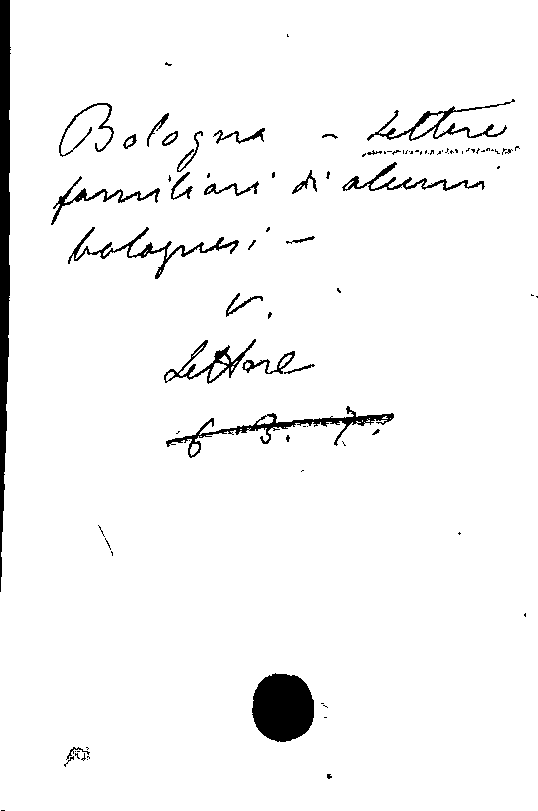 Bologna - Lettere
familiari di alcuni
bolognesi -
v.
Lettere
6 3. 7.